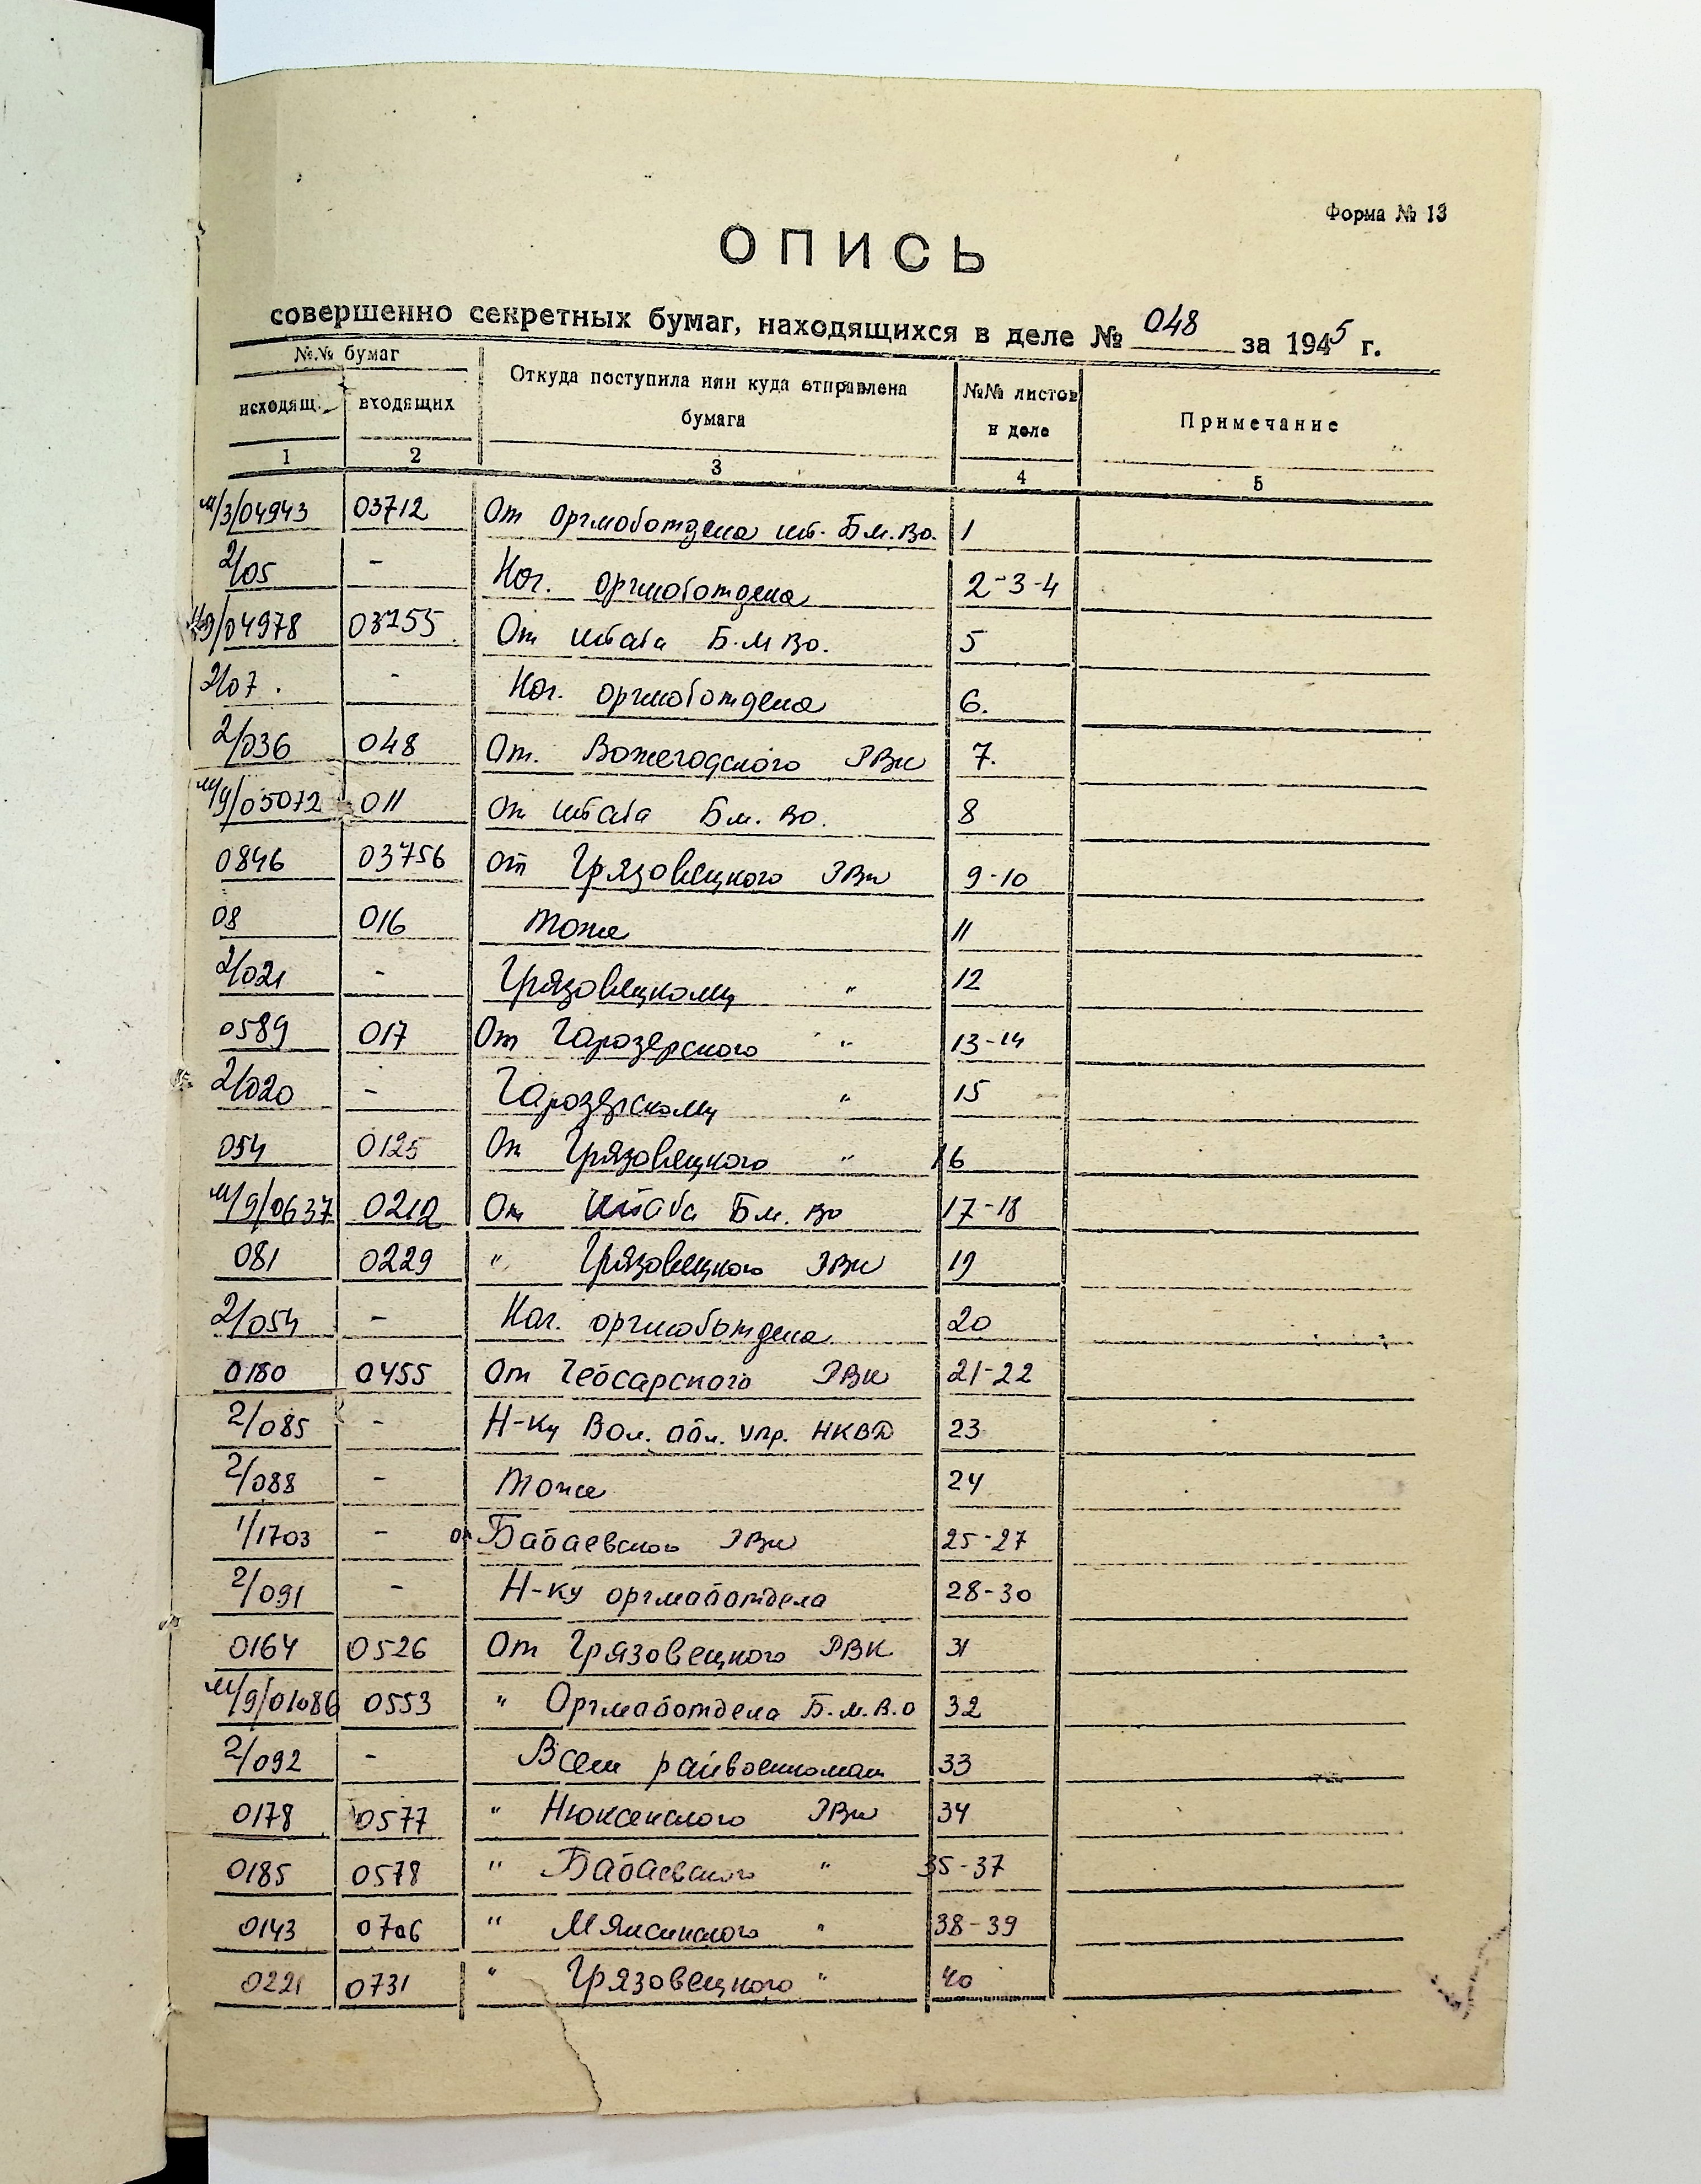 Форма № 13
ОПИСЬ
совершенно секретных бумаг, находящихся в деле № 048 за 1945 г.
№.№ бумаг
Откуда поступила или куда отправлена бумага
№№ листов в деле
Примечание
исходящ. входящих
1 2 3 4 5
м/3/04943 03712 От Оргмоботдела шт. Б.м.Во. 1
2/05 - Нач. оргмоботдела 2-3-4
9/04978 03755 От штаба Б.М Во. 5
2/07. - Нач. оргмоботдела 6.
2/036 048 От. Вожегодского РВк 7.
м/9/05072 011 От штаба Бм. Во. 8
0846 03756 от Грязовецкого РВк 9-10
08 016 Тоже 11
2/021 - Грязовецкому " 12
0589 017 От Чарозерского " 13-14
2/020 - Чарозерскому " 15
054 0125 От Грязовецкого " 16
м/9/0637 0212 От Штаба Бм. Во 17-18
081 0229 " Грязовецкого РВк 19
2/054 - Нач. оргмоботдела 20
0180 0455 От Чебсарского РВк 21-22
2/085 - Н-ку Вол. обл. упр. НКВД 23
2/088 - Тоже 24
1/1703 - от Бабаевского РВк 25-27
2/091 - Н-ку оргмоботдела 28-30
0164 0526 От Грязовецкого РВК 31
м/9/01086 0553 " Оргмоботдела Б.м.В.о 32
2/092 - Всем райвоенкомам 33
0178 0577 " Нюксенского РВк 34
0185 0578 " Бабаевского " 35-37
0143 0706 " Мяксинского " 38-39
0221 0731 " Грязовецкого " 40